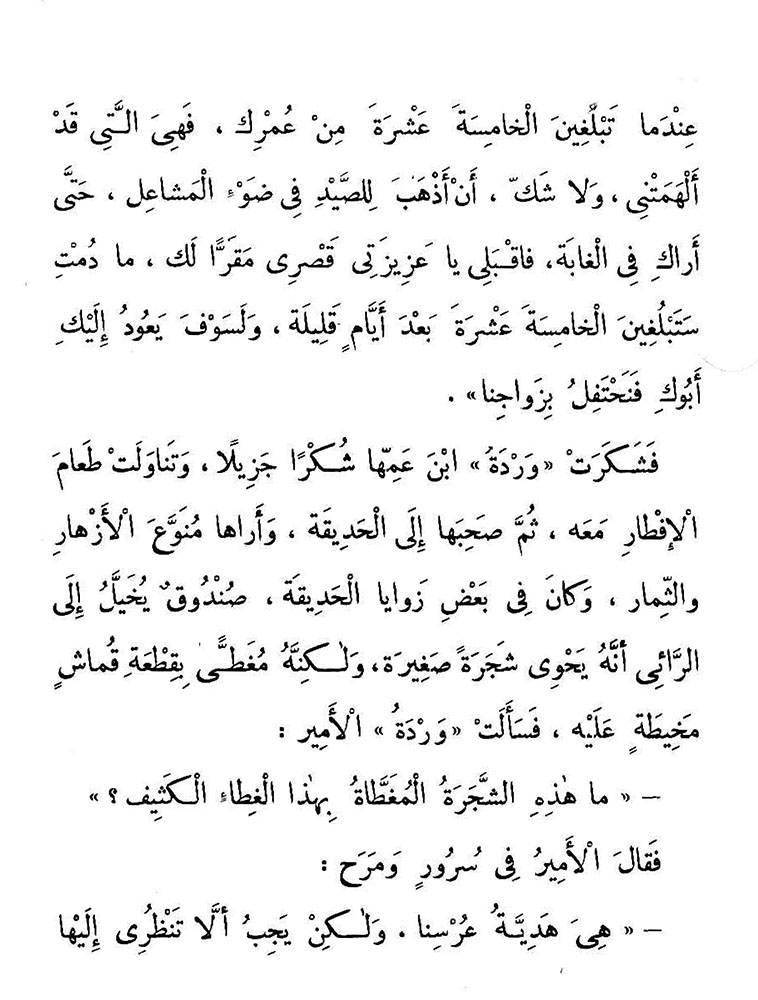 عِنْدَما تَبْلُغِينَ الْخامِسَةَ عَشْرَةَ مِنْ عُمْرِك ، فَهِىَ الَّتِى قَدْ
أَلْهَمَتْنِى ، وَلا شَكّ ، أَنْ أَذْهَبَ لِلصَّيْدِ فِى ضَوْءِ الْمَشاعِل ، حَتَّى
أَراكِ فِى الْغابَة ، فاقْبَلِى يا عَزِيزَتِى قَصْرِى مَقَرًّا لَك ، ما دُمْتِ
سَتَبْلُغِينَ الْخامِسَةَ عَشْرَةَ بَعْدَ أَيَّامٍ قَلِيلَة ، وَلَسَوْفَ يَعُودُ إِلَيْكِ
أَبُوكِ فَنَحْتَفِلُ بِزَواجِنا» .
فَشَكَرَتْ «وَرْدَةُ» ابْنَ عَمِّها شُكْرًا جَزِيلًا ، وَتَناوَلَتْ طَعامَ
الْإِفْطارِ مَعَه ، ثُمَّ صَحِبَها إِلَى الْحَدِيقَة ، وَأَراها مُنَوَّعَ الْأَزْهارِ
والثِّمار ، وَكانَ فِى بَعْضِ زَوايا الْحَدِيقَة ، صُنْدُوقٌ يُخَيَّلُ إِلَى
الرَّائِى أَنَّهُ يَحْوِى شَجَرَةً صَغِيرَة ، وَلٰكِنَّهُ مُغَطًّى بِقِطْعَةِ قُماشٍ
مَخِيطَةٍ عَلَيْه ، فَسَأَلَتْ «وَرْدَةُ» الْأَمِير :
– « ما هٰذِهِ الشَّجَرَةُ الْمُغَطَّاةُ بِهٰذا الْغِطاءِ الْكَثِيف ؟ »
فَقالَ الْأَمِيرُ فِى سُرُورٍ وَمَرَح :
– « هِىَ هَدِيَّةُ عُرْسِنا . وَلٰكِنْ يَجِبُ أَلَّا تَنْظُرِى إِلَيْها